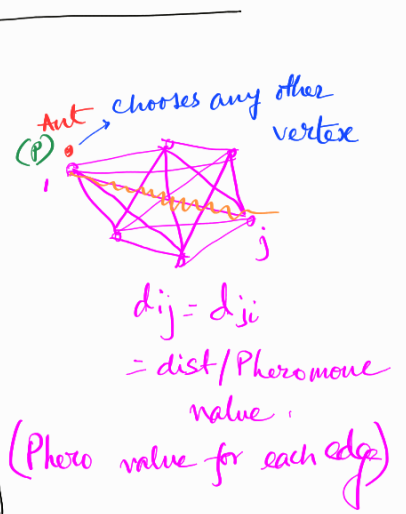 Ant chooses any other
(P) vertex
i
j
dij = dji
= dist/Pheromone
value.
(Phero value for each edge)